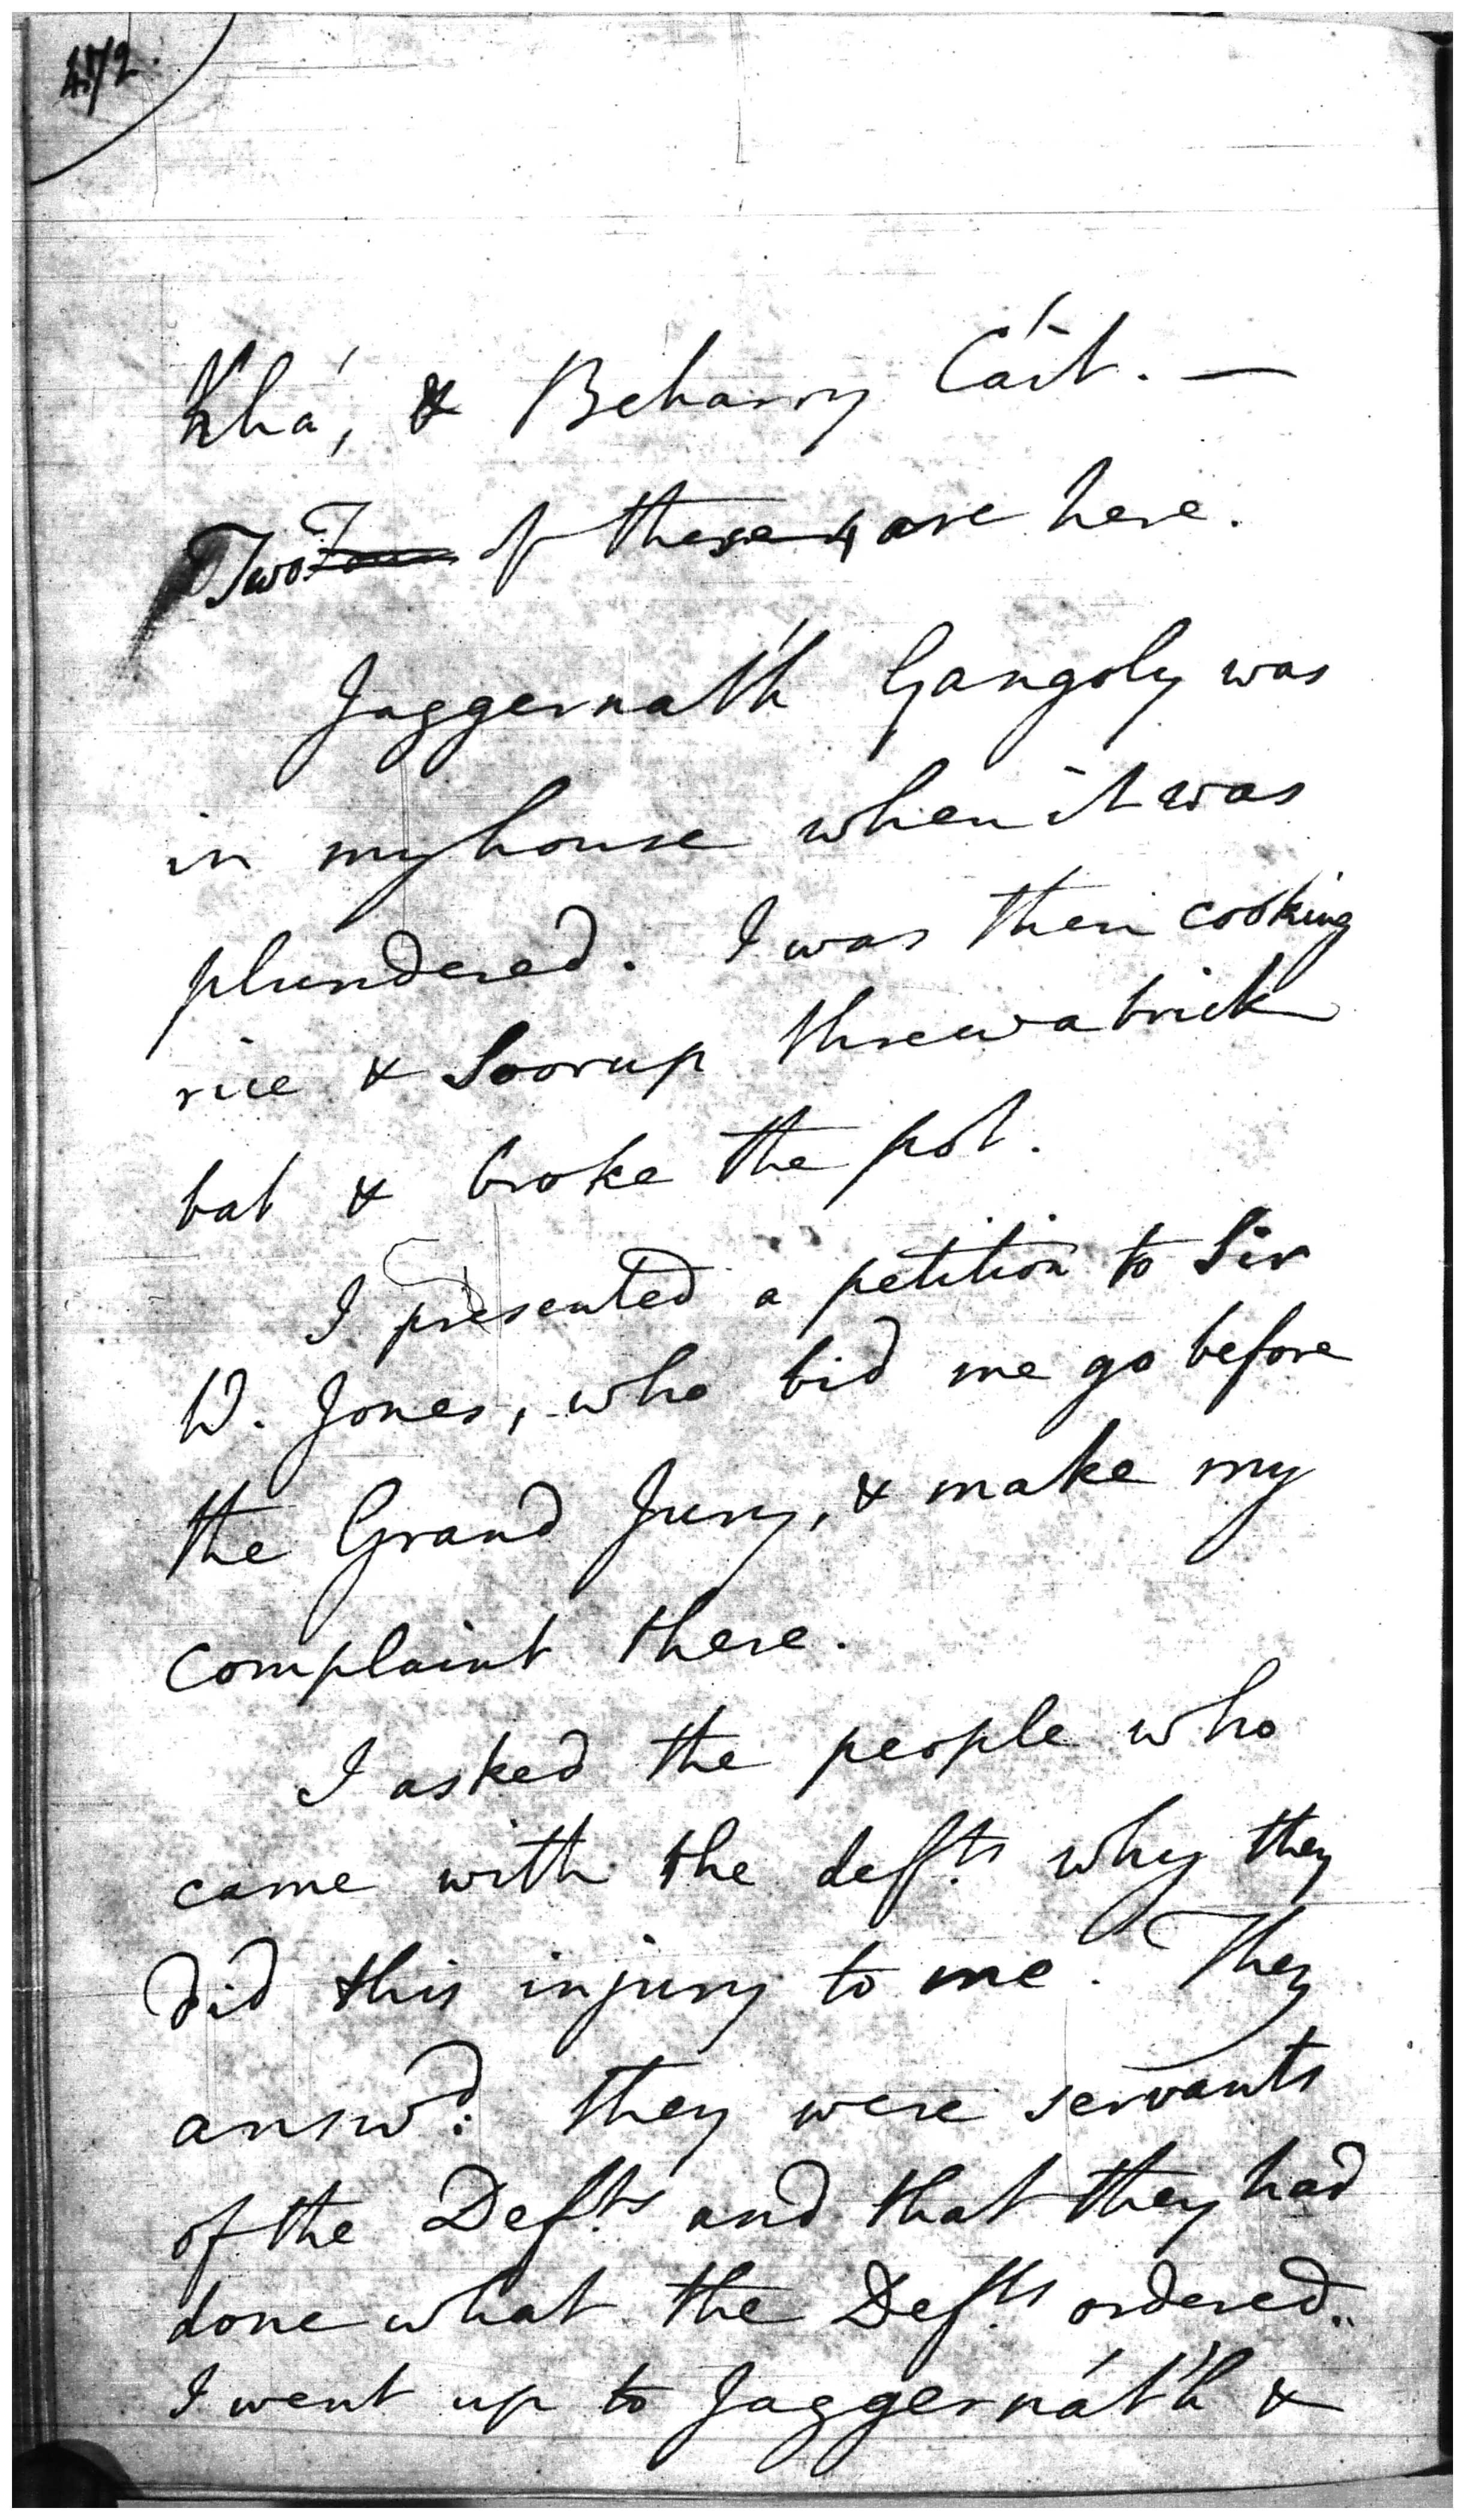 472.
Khá, & Beharry Cáit. —
Two of these 4 are here.
Jaggernat'h Gangoly was
in my house when it was
plundered. I was then cooking
rice & Soorup threw a brick
bat & broke the pot.
I presented a petition to Sir
W. Jones, who bid me go before
the Grand Jury, & make my
complaint there.
I asked the people who
came with the defts. why they
did this injury to me. They
answd. they were servants
of the Defts. and that they had
done what the Defts. ordered.
I went up to Jaggernát'h &